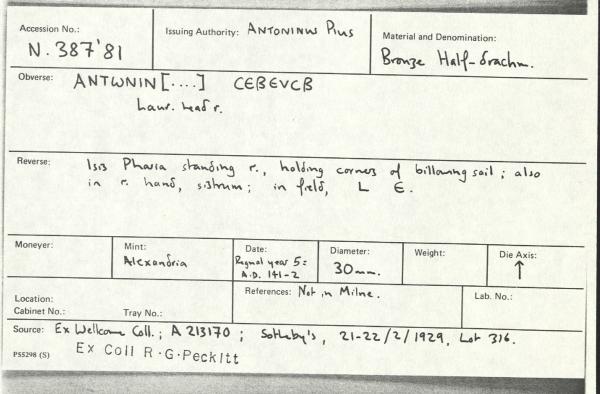 Accession No.: N. 387'81
Issuing Authority: ANTONINUS PIUS
Material and Denomination: Bronze Half-drachm.
Obverse: ANTWNIN[....] CEBEVCB
Laur. head r.
Reverse: Isis Pharia standing r., holding corners of billowing sail; also
in r. hand, sistrum; in field, L E.
Moneyer:
Mint: Alexandria
Date: Regnal year 5 = A.D. 141-2
Diameter: 30mm.
Weight:
Die Axis: ↑
Location:
Cabinet No.: Tray No.:
References: Not in Milne.
Lab. No.:
Source: Ex Wellcome Coll.; A 213170; Sotheby's, 21-22/2/1929, Lot 316.
P55298 (S) Ex Coll R.G.Peckitt